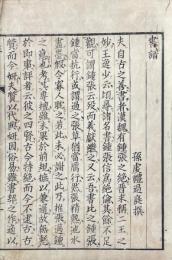 書譜
孫虔禮過庭撰
夫自古之善書者漢魏有鍾張之絕晉末稱二王之
妙王逸少云頃尋諸名書鍾張信為絕倫其餘不足
觀可謂鍾張云歿而羲獻繼之又云吾書比之鍾張
鍾當抗行或謂過之張草猶當鴈行然張精熟池水
盡墨假令寡人耽之若此未必謝之此乃推張邁鍾
之意也考其專擅雖未果於前規摭以兼通故無慚
於即事評者云彼之四賢古今特絕而今不逮古古
質而今妍夫質以代興妍因俗易雖書契之作適以